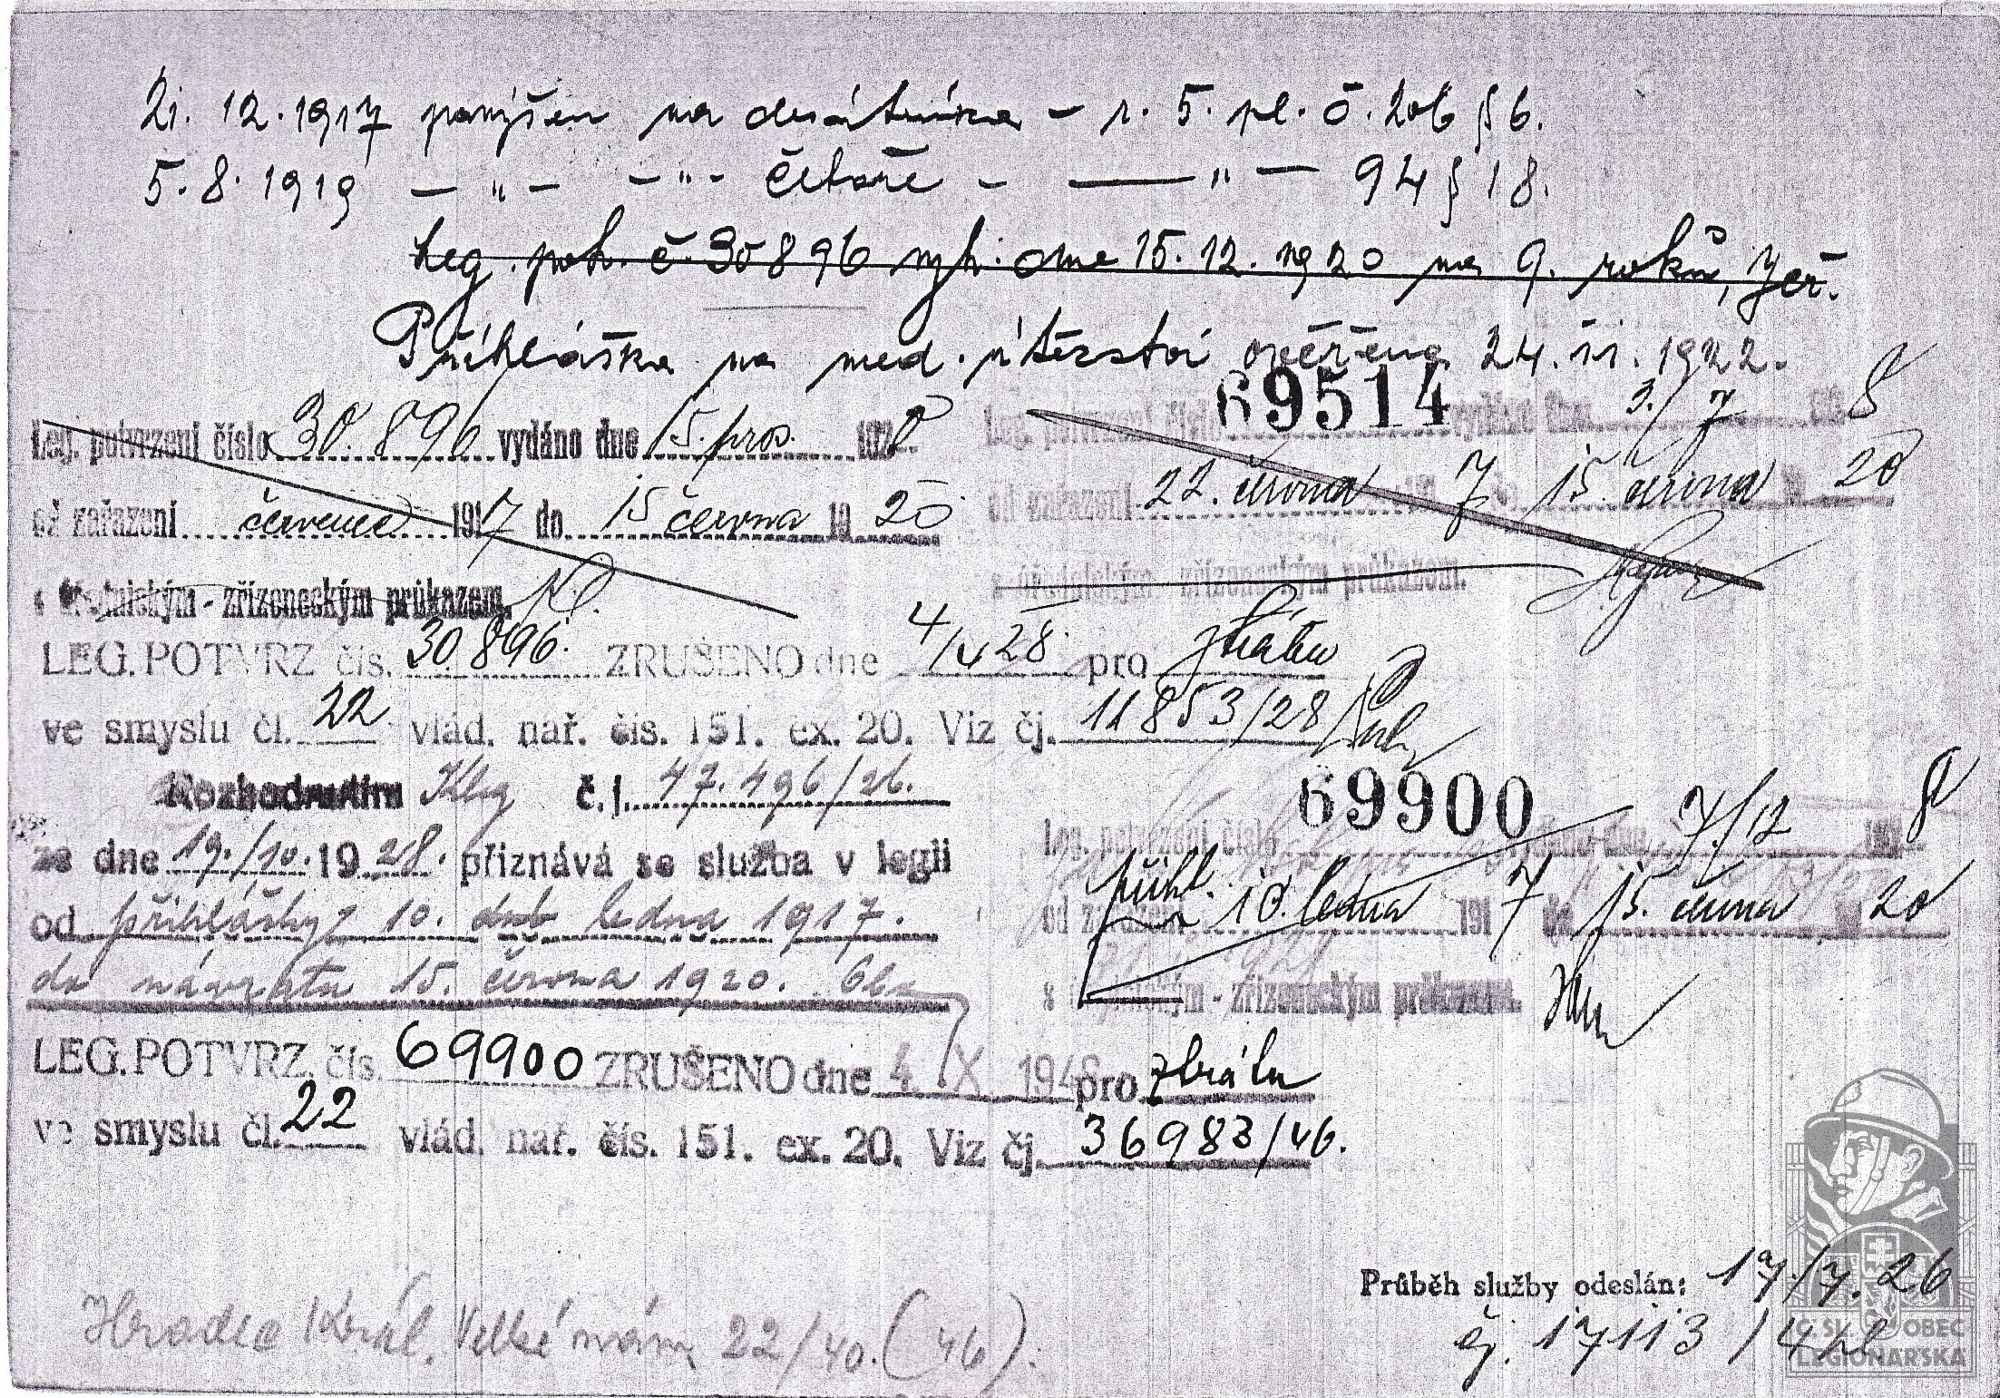 21. 12. 1917 povýšen na desátníka – r. 5. pl. č. 206 § 6.
5. 8. 1919 – " – – " – četaře – — " — 94 § 18.
Leg. potv. č. 30896 vyh. dne 15. 12. 1920 na 9. roků, Jeř.
Přihláška na med. vítězství ověřena 24. III. 1922.
Leg. potvrzení číslo 30.896 vydáno dne 15. pros. 1920
od zařazení červenec 1917 do 15 června 1920
s úřednickým - zřízeneckým průkazem.
Leg. potvrzení číslo 69514 vydáno dne 3./7 8
od zařazení 22. června 7 15. června 20
s úřednickým - zřízeneckým průkazem.
LEG. POTVRZ čís. 30896. ZRUŠENO dne 4/4 28. pro ztrátu
ve smyslu čl. 22 vlád. nař. čís. 151. ex. 20. Viz čj. 11853/28
Rozhodnutím Kleg č. j. 47.496/26.
ze dne 19./10. 1928. přiznává se služba v legii
od přihlášky 10. ledna 1917.
do návratu 15. června 1920.
69900
Leg. potvrzení číslo vydáno dne 7./12 8
přihl.
od zařazení 10. ledna 1917 do 15. června 20
s úřednickým - zřízeneckým průkazem.
LEG. POTVRZ. čís. 69900 ZRUŠENO dne 4. IX 1946 pro ztrátu
ve smyslu čl. 22 vlád. nař. čís. 151. ex. 20. Viz čj. 36983/46.
Průběh služby odeslán: 17/7. 26
čj. 17113
Hradec Král. Velké nám. 22/40. (46).
Č. SL. OBEC
LEGIONÁŘSKÁ